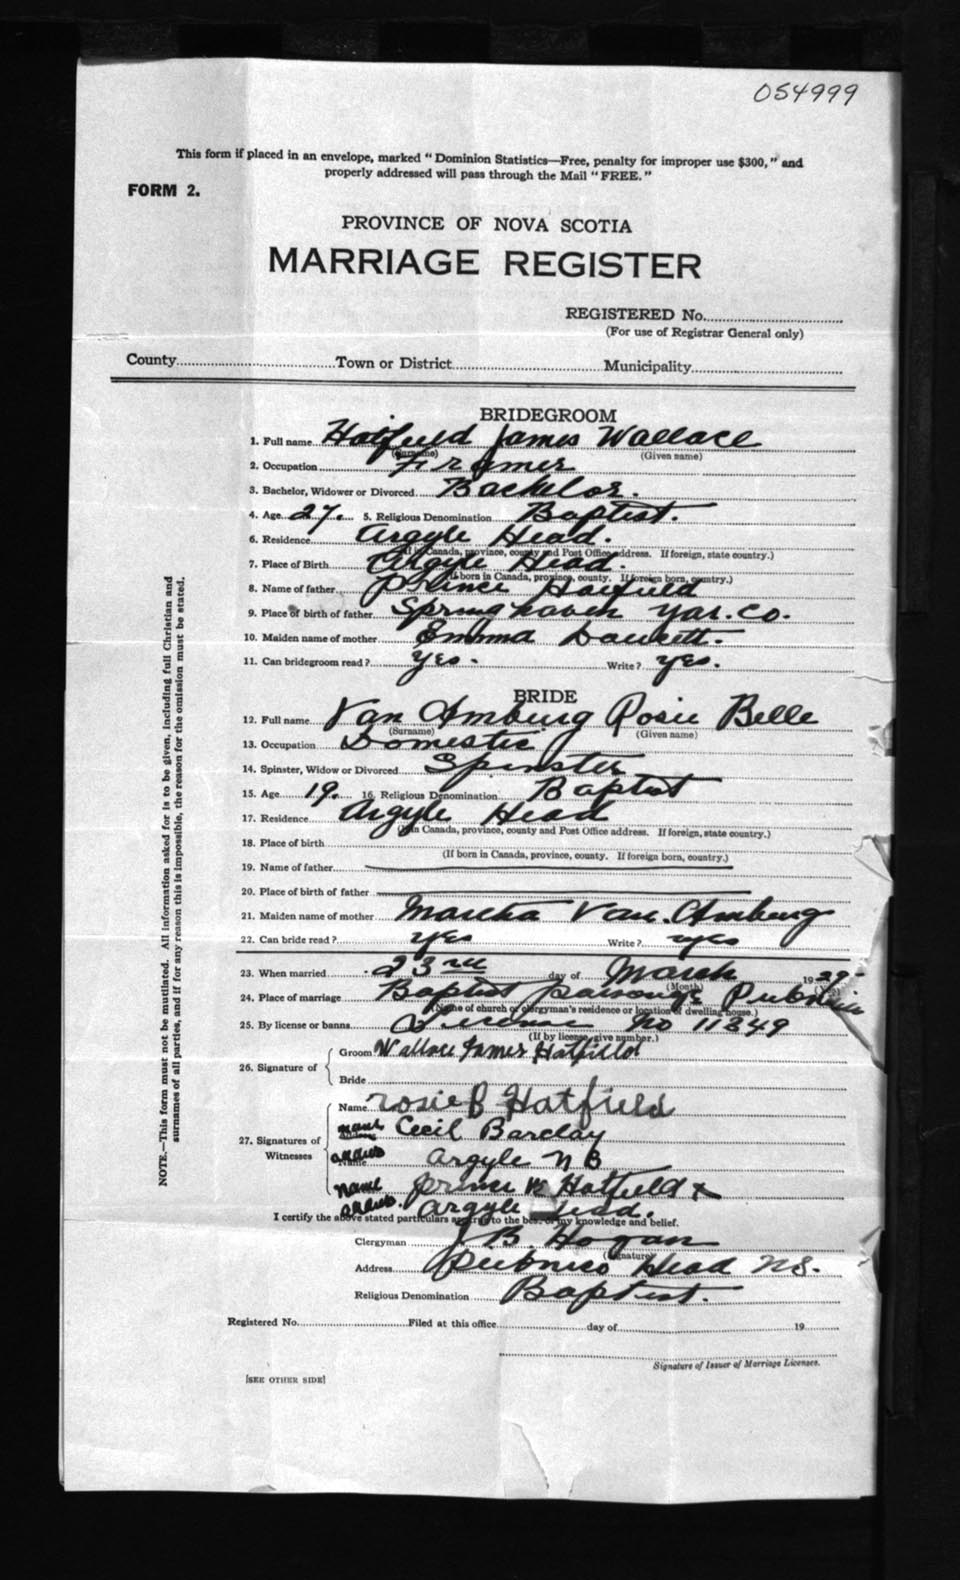 054999
This form if placed in an envelope, marked "Dominion Statistics—Free, penalty for improper use $300," and
properly addressed will pass through the Mail "FREE."
FORM 2.
PROVINCE OF NOVA SCOTIA
MARRIAGE REGISTER
REGISTERED No.
(For use of Registrar General only)
County Town or District Municipality
BRIDEGROOM
1. Full name Hatfield James Wallace
(Surname) (Given name)
2. Occupation Framer
3. Bachelor, Widower or Divorced Bachelor.
4. Age 27. 5. Religious Denomination Baptist.
6. Residence Argyle Head.
(If in Canada, province, county and Post Office address. If foreign, state country.)
7. Place of Birth Argyle Head.
(If born in Canada, province, county. If foreign born, country.)
8. Name of father Prince Hatfield
9. Place of birth of father Springhaven Yar. Co.
10. Maiden name of mother Emma
11. Can bridegroom read? Yes. Write? yes.
BRIDE
12. Full name Van Amburg Rosie Belle
(Surname) (Given name)
13. Occupation Domestic
14. Spinster, Widow or Divorced Spinster
15. Age 19. 16. Religious Denomination Baptist
17. Residence Argyle Head
(If in Canada, province, county and Post Office address. If foreign, state country.)
18. Place of birth
(If born in Canada, province, county. If foreign born, country.)
19. Name of father
20. Place of birth of father
21. Maiden name of mother Martha Van Amburg
22. Can bride read? yes Write? yes
23. When married 23rd day of March 1929
(Month) (Year)
24. Place of marriage Baptist parsonage Pubnico
(Name of church or clergyman's residence or location of dwelling house.)
25. By license or banns License No 11849
(If by license, give number.)
26. Signature of
Groom Wallace James Hatfield
Bride
27. Signatures of Witnesses
Name rosie B Hatfield
name Cecil Barclay
address Argyle N B
Name
name Prince W Hatfield x
address. Argyle Head.
I certify the above stated particulars appear to the best of my knowledge and belief.
Clergyman J B. Hogan
(Signature)
Address Pubnico Head NS.
Religious Denomination Baptist.
Registered No. Filed at this office day of 19
Signature of Issuer of Marriage Licenses.
[SEE OTHER SIDE]
NOTE.—This form must not be mutilated. All information asked for is to be given, including full Christian and
surnames of all parties, and if for any reason this is impossible, the reason for the omission must be stated.